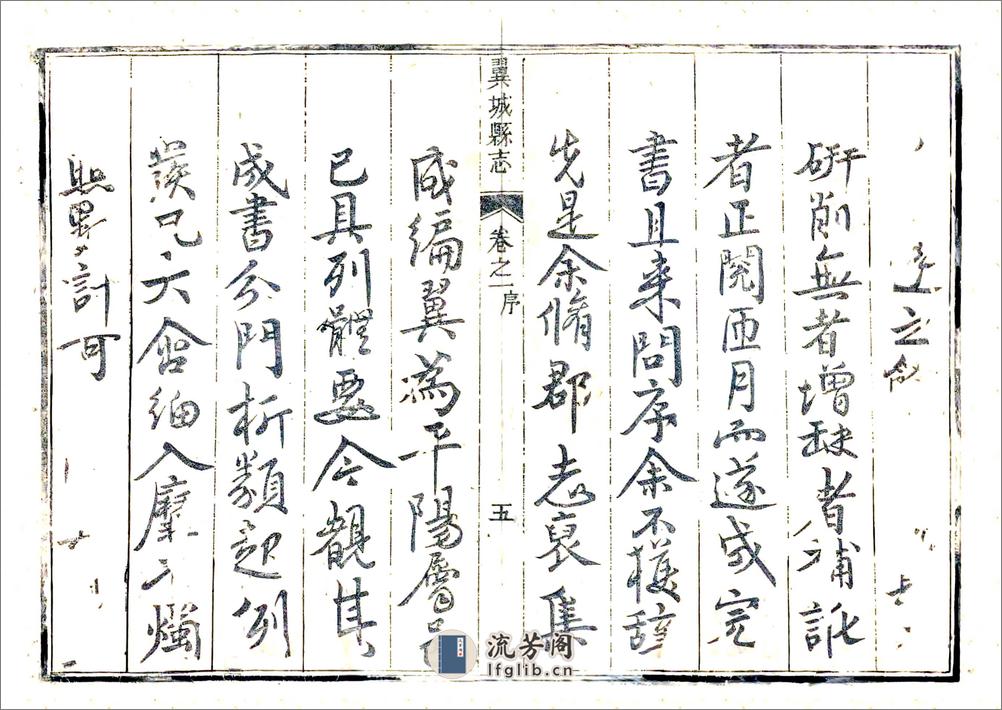 研削無者增缺者補訛
者正閱匝月而遂成完
書且來問序余不獲辭
先是余脩郡志裒集
咸編翼為平陽屬邑
已具列體要今觀其
成書分門析類起例
發凡大含細入靡不燭
照數計可
翼城縣志
卷之一
序
五
流芳阁
lfglib.cn